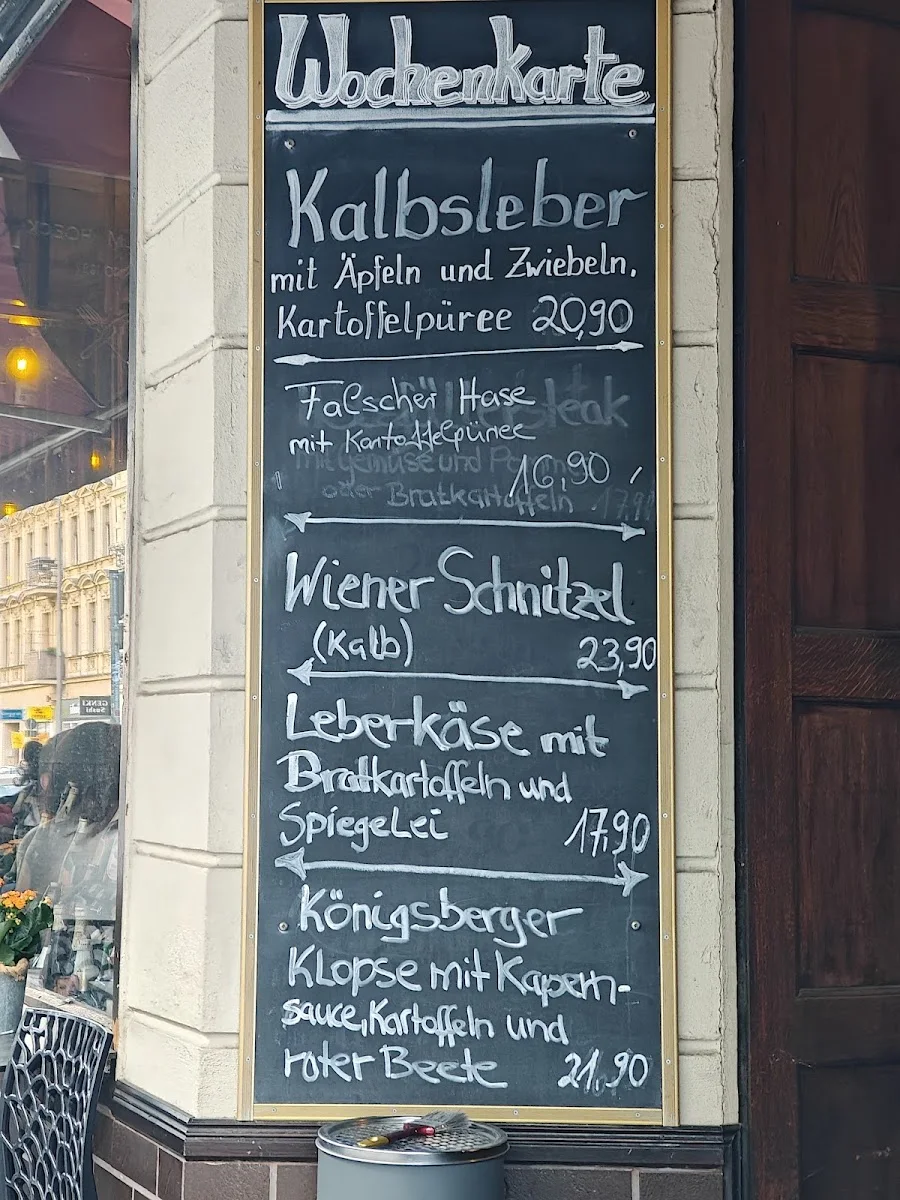 Wochenkarte
Kalbsleber
mit Äpfeln und Zwiebeln,
Kartoffelpüree 20,90
Falscher Hase
mit Kartoffelpüree
16,90
oder Bratkartoffeln 17,90
Wiener Schnitzel
(Kalb) 23,90
Leberkäse mit
Bratkartoffeln und
Spiegelei 17,90
Königsberger
Klopse mit Kapern-
sauce, Kartoffeln und
roter Beete 21,90
GENKI
Sushi